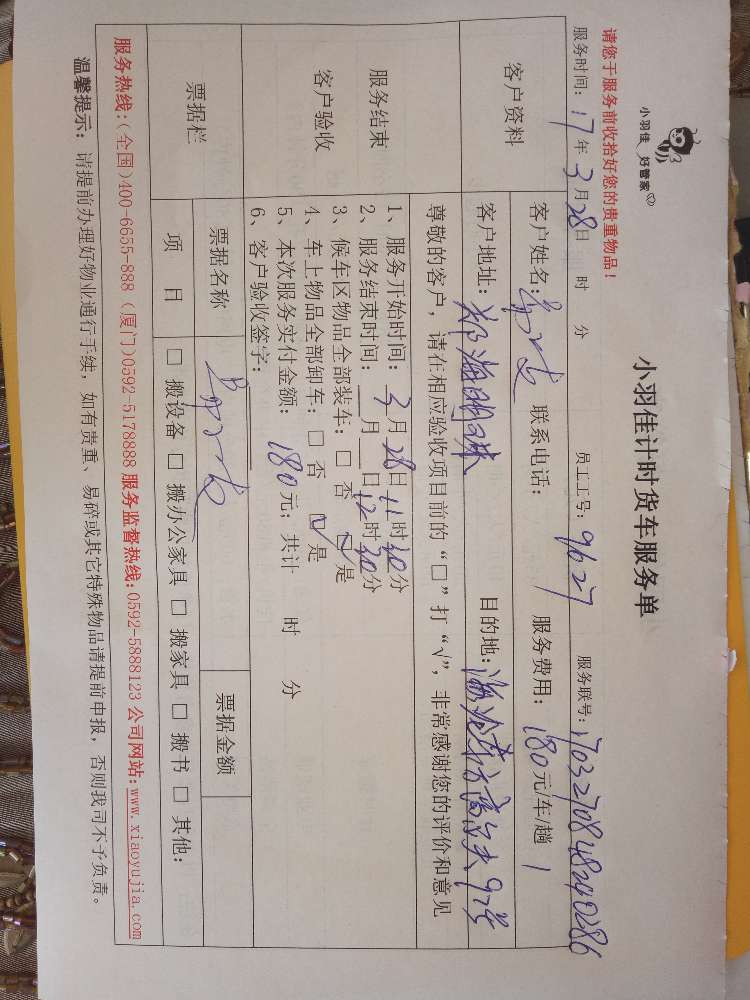 小羽佳 好管家
小羽佳计时货车服务单
请您于服务前收拾好您的贵重物品！
服务时间：17年3月28日 时 分 员工工号：9627 服务联号：1703270848240286
客户资料
客户姓名： 联系电话： 服务费用：180元/车/趟 1
客户地址： 海明珠 目的地：
尊敬的客户，请在相应验收项目前的“□”打“√”，非常感谢您的评价和意见
服务结束
客户验收
1、服务开始时间：3月28日11时30分
2、服务结束时间：＿月＿日12时30分
3、候车区物品全部装车：□ 否 ☑ 是
4、车上物品全部卸车：□ 否 ☑ 是
5、本次服务实付金额：180元；共计 时 分
6、客户验收签字：
票据栏
票据名称 票据金额
项 目 □ 搬设备 □ 搬办公家具 □ 搬家具 □ 搬书 □ 其他：
服务热线：(全国)400-6655-888 (厦门)0592-5178888 服务监督热线:0592-5888123 公司网站:www.xiaoyujia.com
温馨提示：请提前办理好物业通行手续，如有贵重、易碎或其它特殊物品请提前申报，否则我司不予负责。